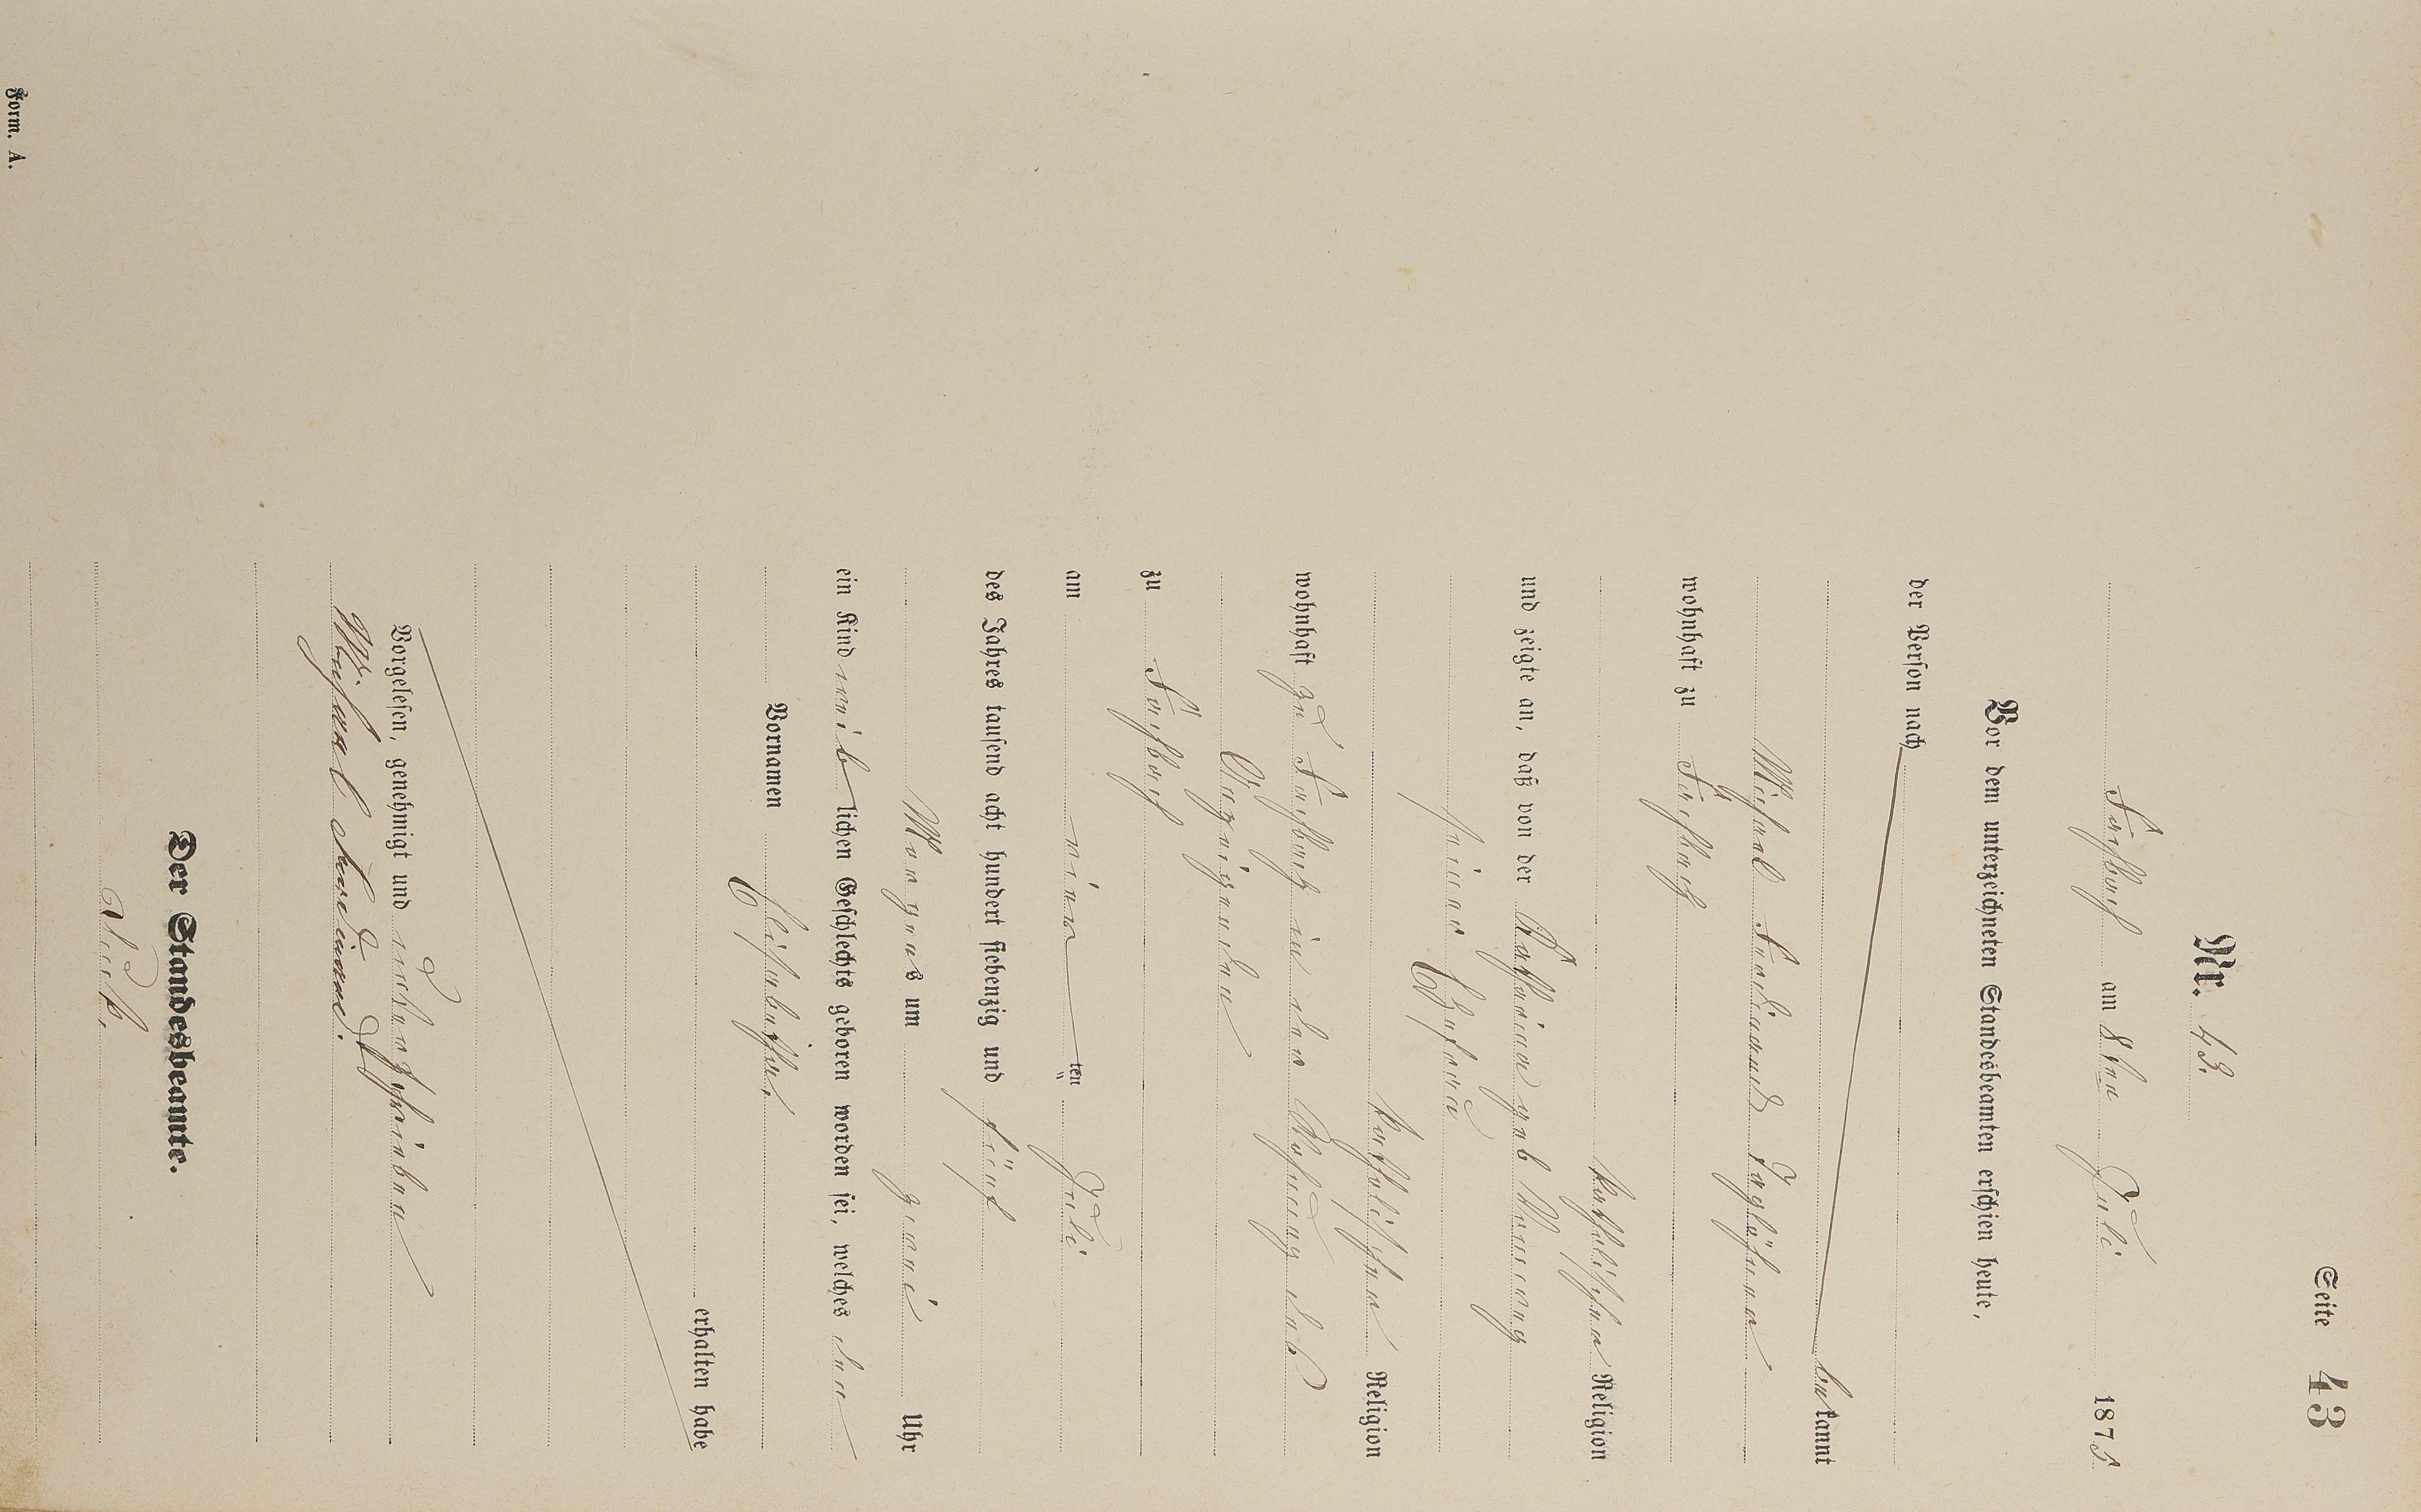 Seite 43
Nr. 43.
Fachbach am 8ten Juli 1875
Vor dem unterzeichneten Standesbeamten erschien heute,
der Person nach
bekannt
Michael Taglöhner
wohnhaft zu Fachbach
katholischer Religion
und zeigte an, daß von der Katharina geb
seiner Ehefrau
katholischer Religion
wohnhaft zu Fachbach in der Wohnung des
Anzeigenden
zu Fachbach
am vier ten Juli
des Jahres tausend acht hundert siebenzig und fünf
Morgens um zwei Uhr
ein Kind weib lichen Geschlechts geboren worden sei, welches den
Vornamen Elisabetha.
erhalten habe
Vorgelesen, genehmigt und unterschrieben
Michael
Der Standesbeamte.
Form. A.